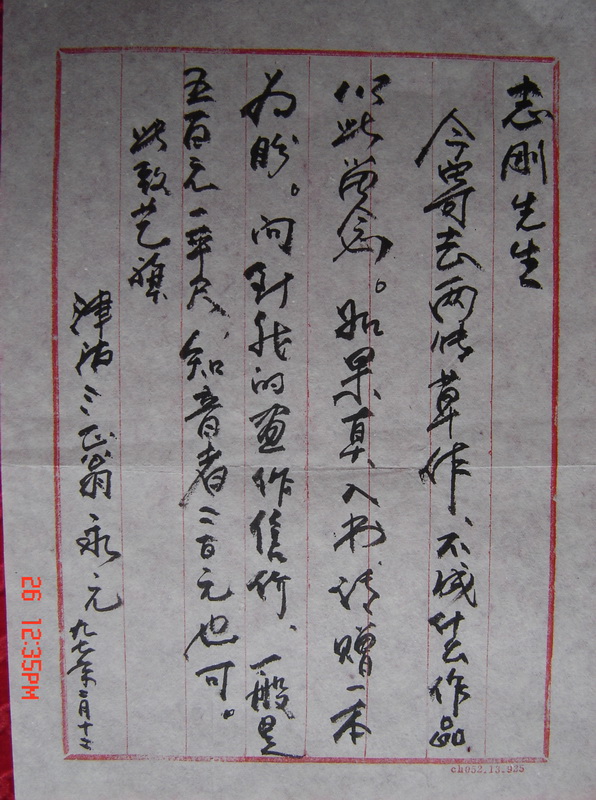 志刚先生
今寄去两件草作、不成什么作品、
以此留念。如果真入书请赠一本
为盼。问到我的画作信价、一般是
五百元一平尺、知音者二百元也可。
此致艺祺
津沽三正翁永元
九七年二月十二
26 12:35PM
ch952.13.925